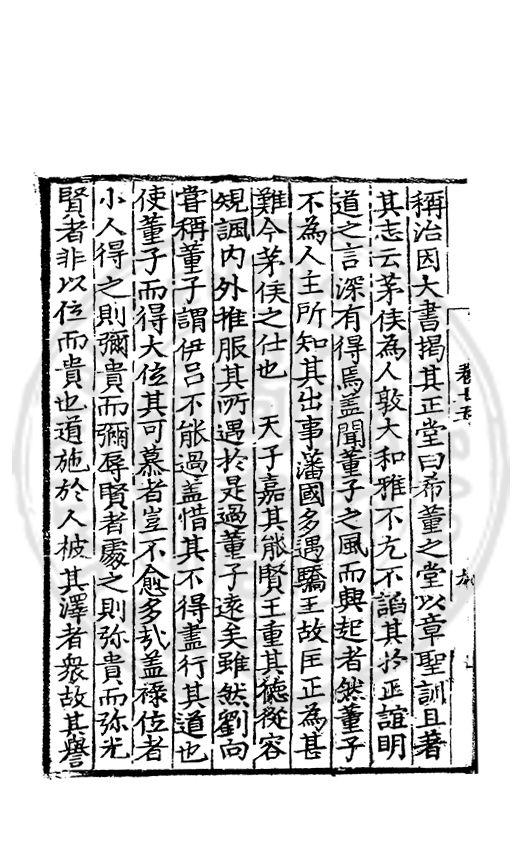 稱治因大書揭其正堂曰希董之堂以章聖訓且著
其志云茅侯為人敦大和雅不亢不謟其於正誼明
道之言深有得焉盖聞董子之風而興起者然董子
不為人主所知其出事藩國多遇驕王故匡正為甚
難今茅侯之仕也　天子嘉其能賢王重其德從容
規諷内外推服其所遇於是過董子遠矣雖然劉向
甞稱董子謂伊吕不能過盖惜其不得盡行其道也
使董子而得大位其可慕者豈不愈多哉盖祿位者
小人得之則彌貴而彌辱賢者處之則弥貴而弥光
賢者非以位而貴也道施於人被其澤者衆故其譽
卷十五